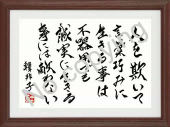 人を欺いて
言葉巧みに
生きる事は
不器用でも
誠実に生きる
事には敵わない